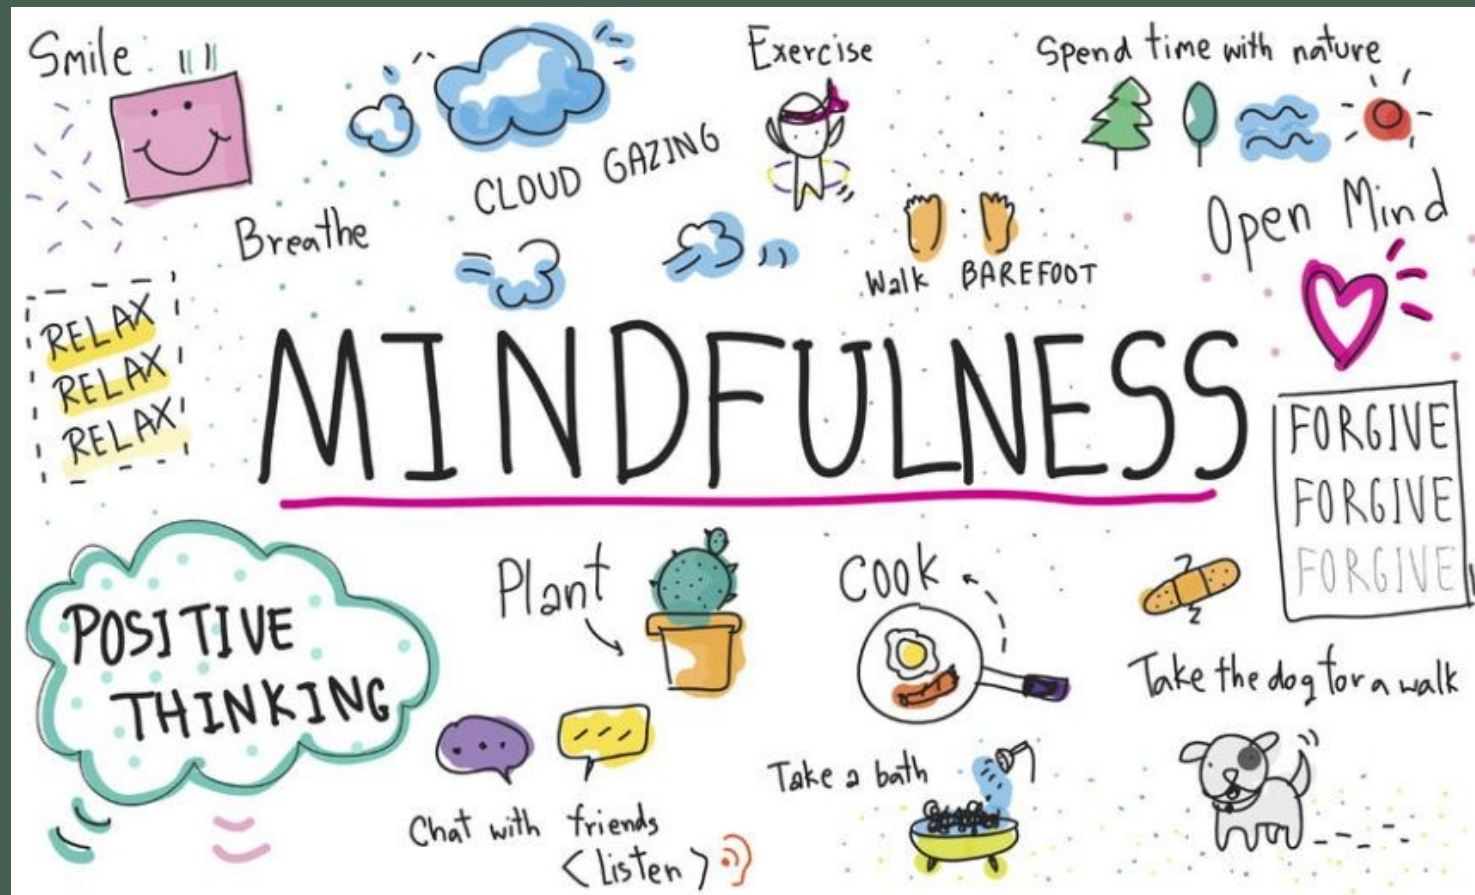 Smile
Exercise
Spend time with nature
CLOUD GAZING
Breathe
Walk BAREFOOT
Open Mind
RELAX
RELAX
RELAX
MINDFULNESS
FORGIVE
FORGIVE
FORGIVE
POSITIVE
THINKING
Plant
Cook
Take the dog for a walk
Take a bath
Chat with friends
<Listen>